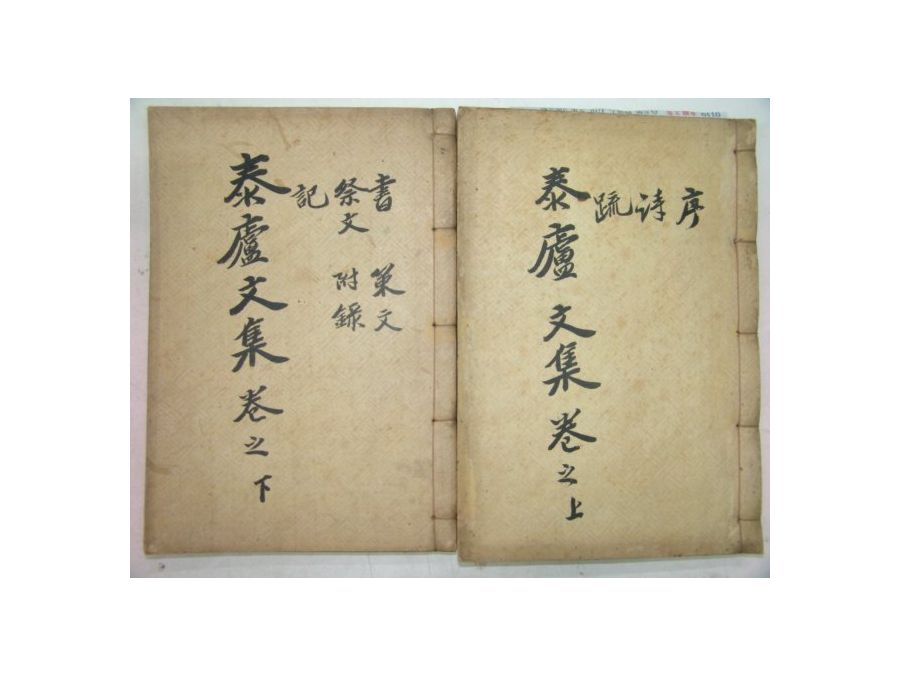 序
詩
疏
泰廬文集 卷之上
書 策文
祭文 附錄
記
泰廬文集 卷之下